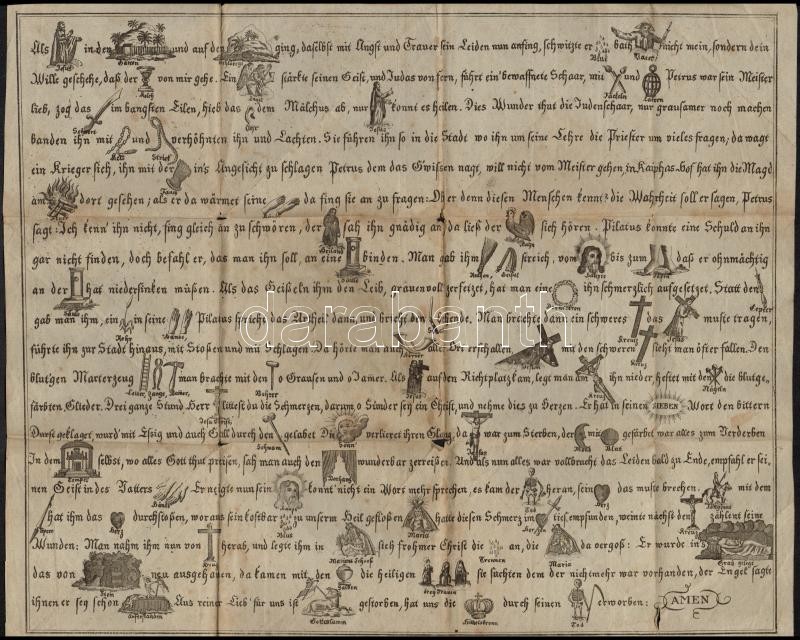 Als in den und auf den ging, daselbst mit Angst und Trauer sein Leiden nun anfing, schwitzte er bath nicht mein, sondern dein
Jesus Garten Oelberg Blut Vater
Wille geschehe, daß der von mir gehe. Ein stärkte seinen Geist, und Judas von fern, führt ein' bewaffnete Schaar, mit und Petrus war sein Meister
Kelch Engel Fackeln Latern
lieb, zog das im bangsten Eilen, hieb das dem Malchus ab, nur konnt es heilen. Dies Wunder thut die Judenschaar, nur grausamer noch machen
Schwert Ohr Jesus
banden ihn mit und verhöhnten ihn und Lachten. Sie führen ihn so in die Stadt wo ihn um seine Lehre die Priester um vieles fragen; da wagt
Kett Strick
ein Krieger sich, ihn mit der in's Angesicht zu schlagen Petrus dem das G'wissen nagt, will nicht vom Meister gehen, in Kaiphas-Hof hat ihn die Magd
am dort gesehen; als er da wärmet seine da fing sie an zu fragen: Ob er denn diesen Menschen kennt? die Wahrheit soll er sagen, Petrus
sagt: Ich kenn' ihn nicht, fing gleich an zu schwören, der sah ihn gnädig an da ließ der sich hören. Pilatus konnte eine Schuld an ihn
Heiland Hahn
gar nicht finden, doch befahl er, das man ihn soll, an eine binden. Man gab ihm streich, vom bis zum daß er ohnmächtig
Säule Ruthen, Geisel
an der hat niedersinken müßen. Als das Geißeln ihm den Leib, grauenvoll zersetzet, hat man eine ihn schmerzlich aufgesetzet. Statt den
Säule Zepter
gab man ihm, ein in seine Pilatus spricht das Urtheil dann, und bricht den behende. Man brachte dann ein schweres das muste tragen,
Rohr Hände, Kreuz Jesus
führte ihn zur Stadt hinaus, mit Stoßen und mit Schlagen. Da hörte man auch Der erschallen, mit den schweren sieht man öfter fallen. Den
Kreuz
blutgen Marterzeug man brachte mit den o Grausen und o Jamer. Als auf den Richtplatz kam, legt man am ihn nieder, heftet mit den die blutge„
Leiter, Zange, Hamer, Bohrer Jesus Kreuz Nägeln
färbten Glieder. Drei ganze Stund Herr littest du die Schmerzen, darum o Sünder sey ein Christ, und nehme dies zu Herzen. Er hat in seinen SIEBEN Wort den bittern
Jesu Christ
Durst geklaget, wurd' mit Essig und auch Gall durch den gelabet Die verlieret ihren Glanz, da war zum Sterben, der mit gefärbet war alles zum Verderben
Schwam Sonn Mond Blut
In dem selbst, wo alles Gott thut preisen, sah man auch den wunderbar zerreißen. Und als nun alles war vollbracht das Leiden bald zu Ende, empfahl er sei„
Tempel Vorhang
nen Geist in des Vatters Er neigte nun sein konnt' nicht ein Wort mehr sprechen, es kam der heran, sein das muste brechen. mit dem
Hände Haupt Tod Herz Longinus
hat ihm das durchstoßen, woraus sein kostbar zu unserm Heil geflossen hatte diesen Schmerz im tief empfunden, weinte nächst dem zählend seine
Speer Herz Blut Maria Herzen Kreuz
Wunden: Man nahm ihn nun von herab, und legte ihm in sich frohmer Christ die an, die da vergoß: Er wurde in's
Kreuz Marien Schooß Maria Grab gelegt
das von neu ausgehauen, da kamen mit den die heiligen sie suchten dem der nicht mehr war vorhanden, der Engel sagte
Stein Salben drey Frauen
ihnen er sey schon Aus reiner Lieb' für uns ist gestorben, hat uns die durch seinen erworben: AMEN
auferstanden Gotteslamm Himelskron Tod
darabanth